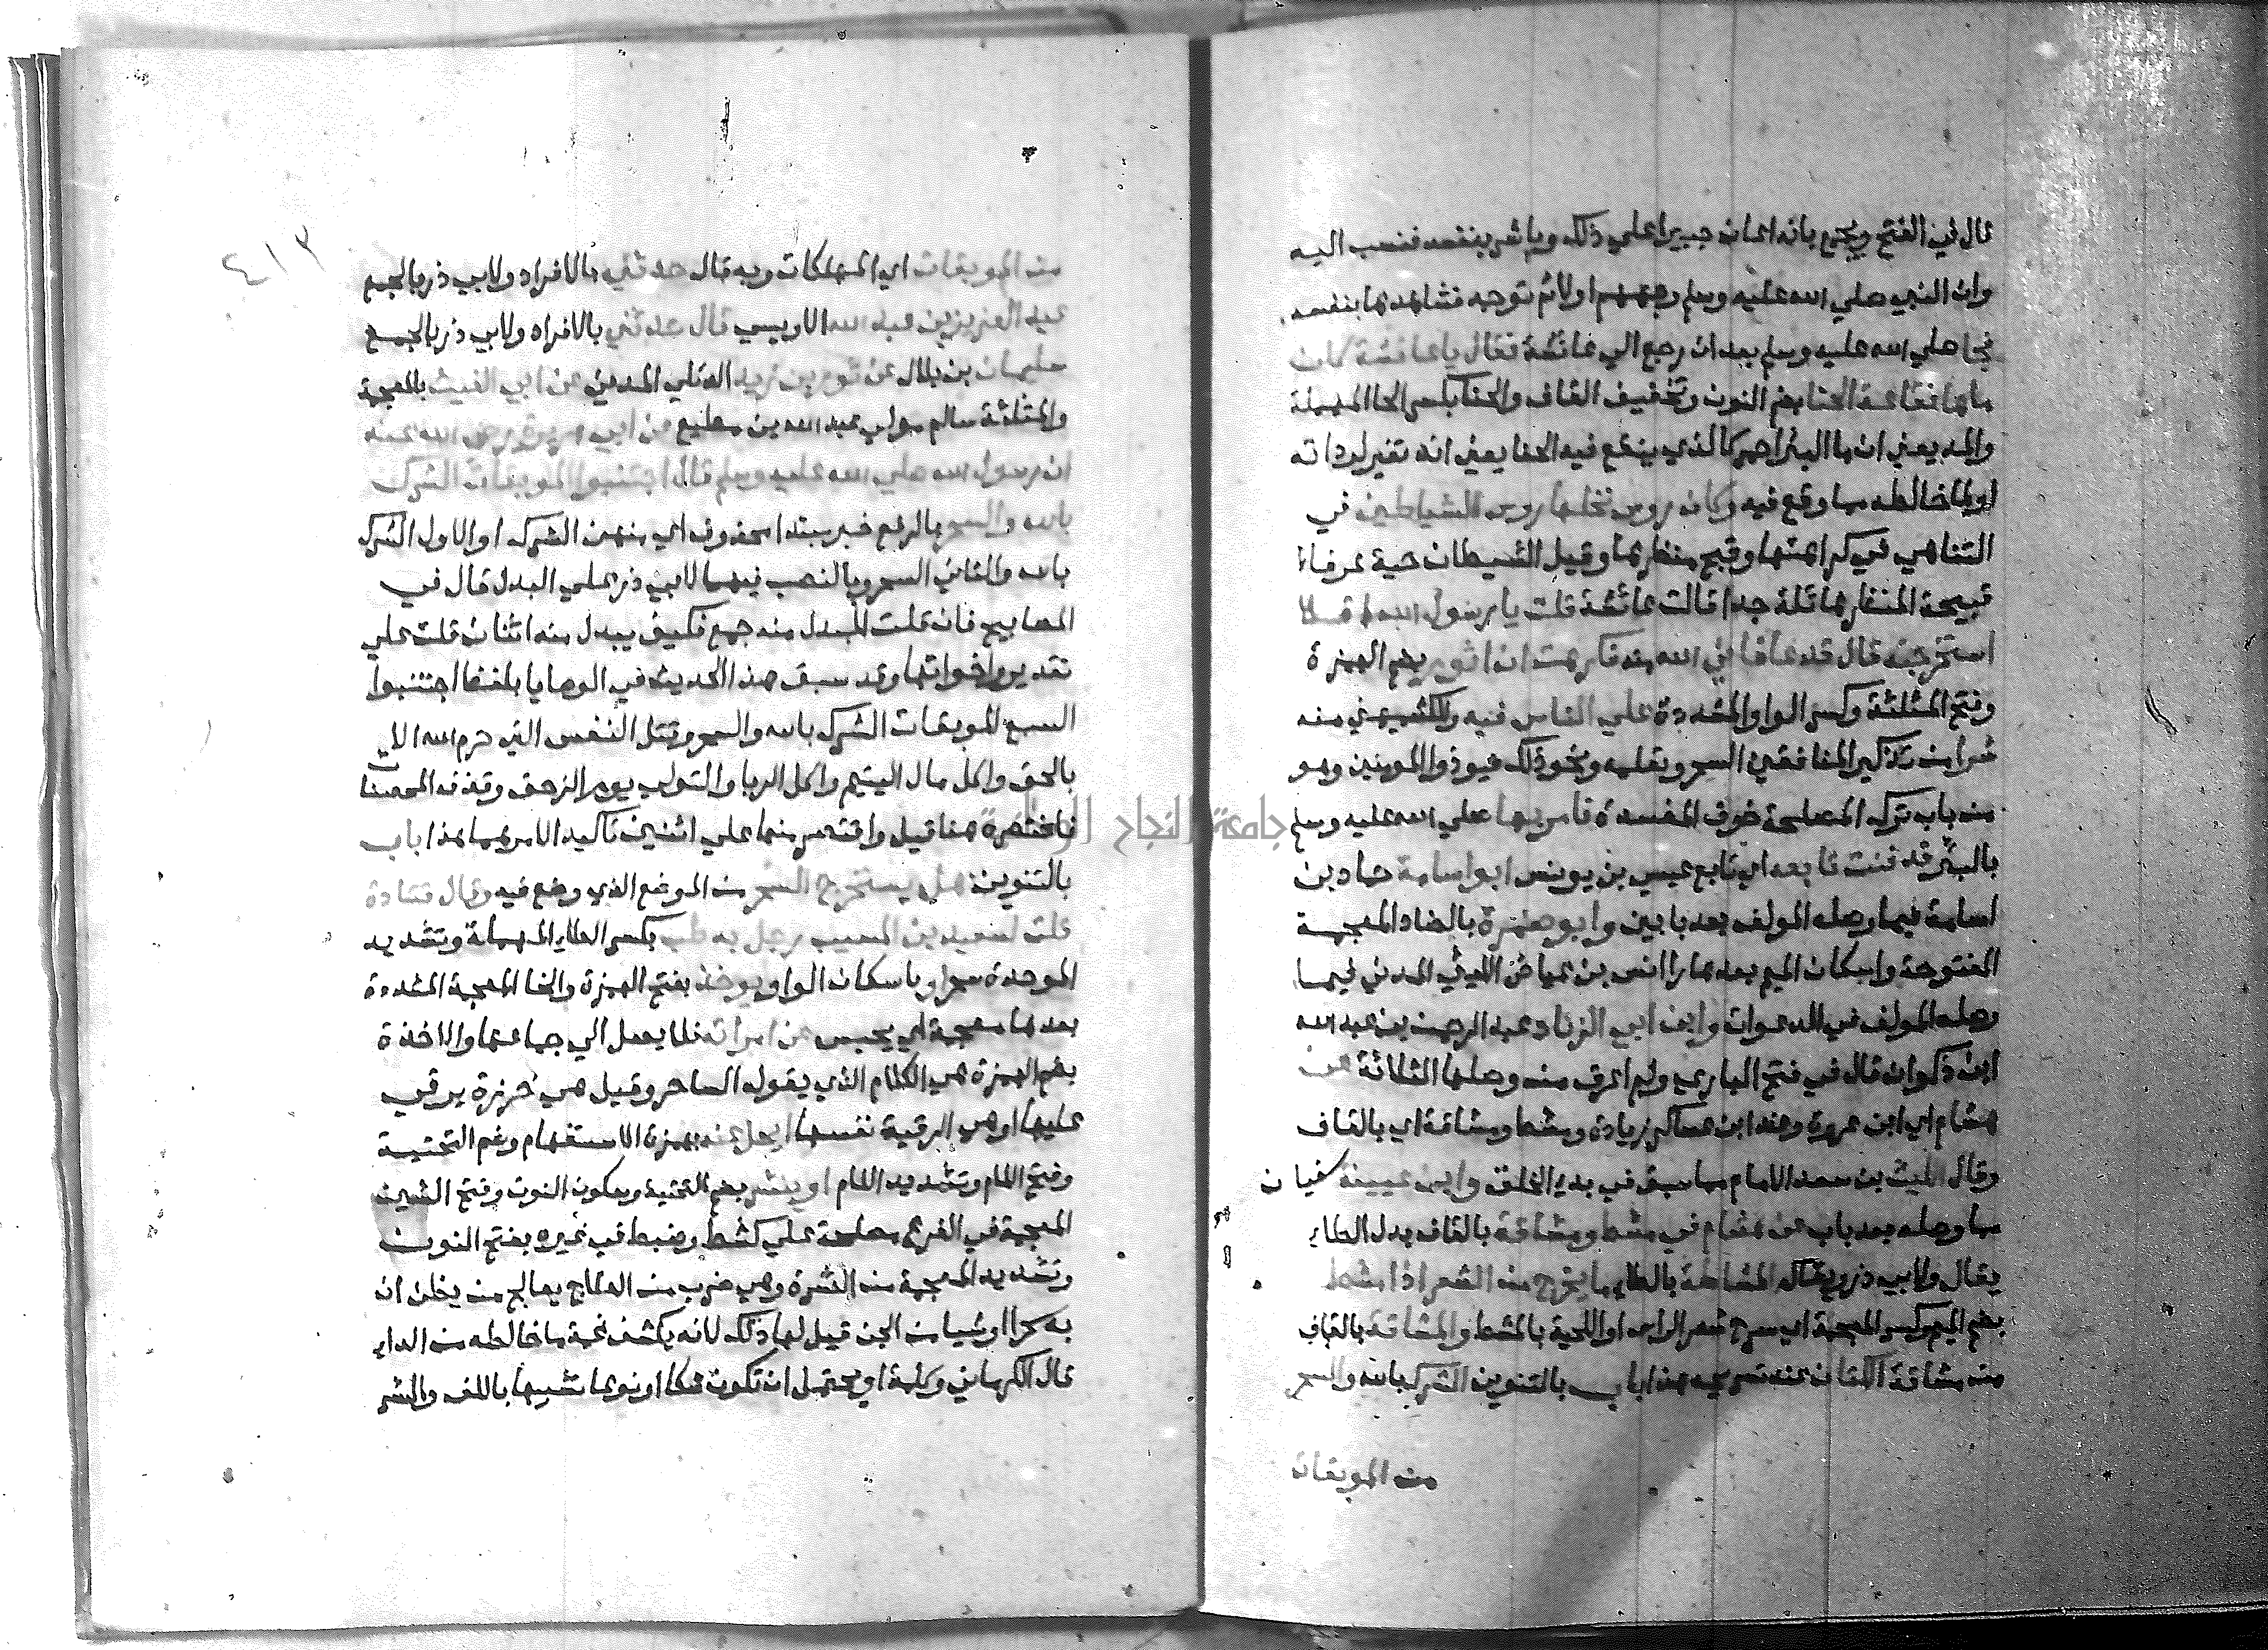 قال في الفتح ويجمع بانه اعان جبيرا علي ذلك وباشر بنفسه فنسب اليه
وان النبي صلي الله عليه وسلم وجههم اولا ثم توجه فشاهدها بنفسه
فجا صلي الله عليه وسلم بعد ان رجع الي عائشة فقال يا عائشة كان
ماها نقاعة الحنا بضم النون وتخفيف القاف والحنا بكسر الحا المهملة
والمد يعني ان ما البئر احمر كالذي ينقع فيه الحنا يعني انه تغير لرداته
او لما خالطه مما وقع فيه وكان روس نخلها روس الشياطين في
التناهي في كراهتها وقبح منظرها وقيل الشيطان حية عرفا
قبيحة المنظر هائلة جدا قالت عائشة قلت يا رسول الله افلا
استخرجته قال قد عافاني الله منه فكرهت ان اثور بضم الهمزة
وفتح المثلثة وكسر الواو المشددة علي الناس فيه وللكشميهني منه
شرا من تذكير المنافقين السحر وتعلمه ونحو ذلك فيوذوا المومنين وهو
من باب ترك المصلحة خوف المفسدة فامر بها صلي الله عليه وسلم
بالبئر فدفنت تابعه اي تابع عيسي بن يونس ابو اسامة حماد بن
اسامة فيما وصله المولف بعد بابين وابو ضمرة بالضاد المعجمة
المفتوحة واسكان الميم بعدها را انس بن عياض الليثي المدني فيما
وصله المولف في الدعوات وابن ابي الزناد عبد الرحمن بن عبد الله
ابن ذكوان قال في فتح الباري ولم اعرف من وصلها الثلاثة عن
هشام اي ابن عروة وعند ابن عساكر زيادة ومشط ومشاقة اي بالقاف
وقال الليث بن سعد الامام مما سبق في بدء الخلق وابن عيينة سفيان
مما وصله بعد باب عن هشام في مشط ومشاقة بالقاف بدل الطاء
يقال ولابي ذر ويقال المشاطة بالطاء ما يخرج من الشعر اذا مشط
بضم الميم وكسر المعجمة اي سرح شعر الراس او اللحية بالمشط والمشاقة بالقاف
من مشاقة الكتان عند تسريحه هذا باب بالتنوين الشرك بالله والسحر
من الموبقات
٤١٢
من الموبقات اي المهلكات وبه قال حدثني بالافراد ولابي ذر بالجمع
عبد العزيز بن عبد الله الاويسي قال حدثني بالافراد ولابي ذر بالجمع
سليمان بن بلال عن ثور بن زيد الديلي المدني عن ابي الغيث بالمعجمة
والمثلثة سالم مولي عبد الله بن مطيع عن ابي هريرة رضي الله عنه
ان رسول الله صلي الله عليه وسلم قال اجتنبوا الموبقات الشرك
بالله والسحر بالرفع خبر مبتدا محذوف اي منهن الشرك او الاول الشرك
بالله والثاني السحر وبالنصب فيهما لابي ذر علي البدل قال في
المصابيح فان قلت المبدل منه جمع فكيف يبدل منه اثنان قلت علي
تقدير واخواتها وقد سبق هذا الحديث في الوصايا بلفظ اجتنبوا
السبع الموبقات الشرك بالله والسحر وقتل النفس التي حرم الله الا
بالحق واكل مال اليتيم واكل الربا والتولي يوم الزحف وقذف المحصنات
فاختصره هنا قيل واقتصر منها علي اثنين تاكيد الامر بهما هذا باب
بالتنوين هل يستخرج السحر من الموضع الذي وضع فيه وقال قتادة
قلت لسعيد بن المسيب رجل به طب بكسر الطاء المهملة وتشديد
الموحدة سحر او باسكان الواو يوخذ بفتح الهمزة والخا المعجمة المشددة
بعدها معجمة اي يحبس عن امراته فلا يصل الي جماعها والاخذة
بضم الهمزة هي الكلام الذي يقوله الساحر وقيل هي خرزة يرقي
عليها او هي الرقية نفسها ايحل عنه بهمزة الاستفهام وضم التحتية
وفتح اللام وتشديد اللام او ينشر بضم التحتية وسكون النون وفتح الشين
المعجمة في الفرع مصلحة علي كشط وضبط في غيره بفتح النون
وتشديد المعجمة من النشرة وهي ضرب من العلاج يعالج من يظن ان
به سحرا او شيا من الجن قيل لها ذلك لانه يكشف غمة ما خالطه من الداء
قال الكرماني وكلمة او يحتمل ان تكون شكا او نوعا شبيها باللف والنشر